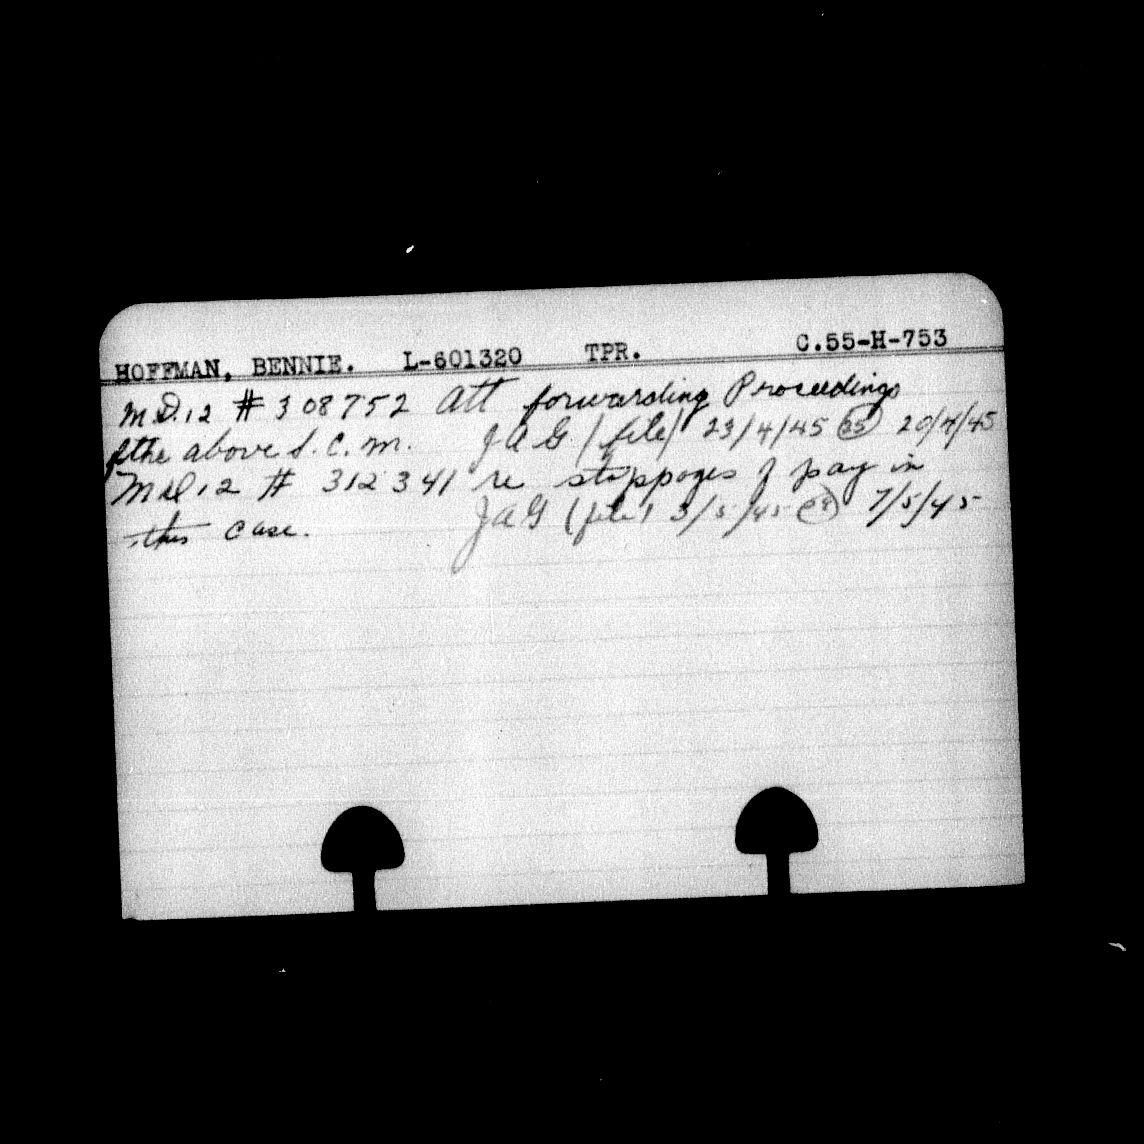 HOFFMAN, BENNIE. L-601320 TPR. C.55-H-753
M.D.12 # 308752 Att forwarding Proceedings
of the above D.C.M. JAG (file) 23/4/45 20/4/45
M.D.12 # 312341 re stoppages of pay in
this case. JAG (file) 3/5/45 7/5/45